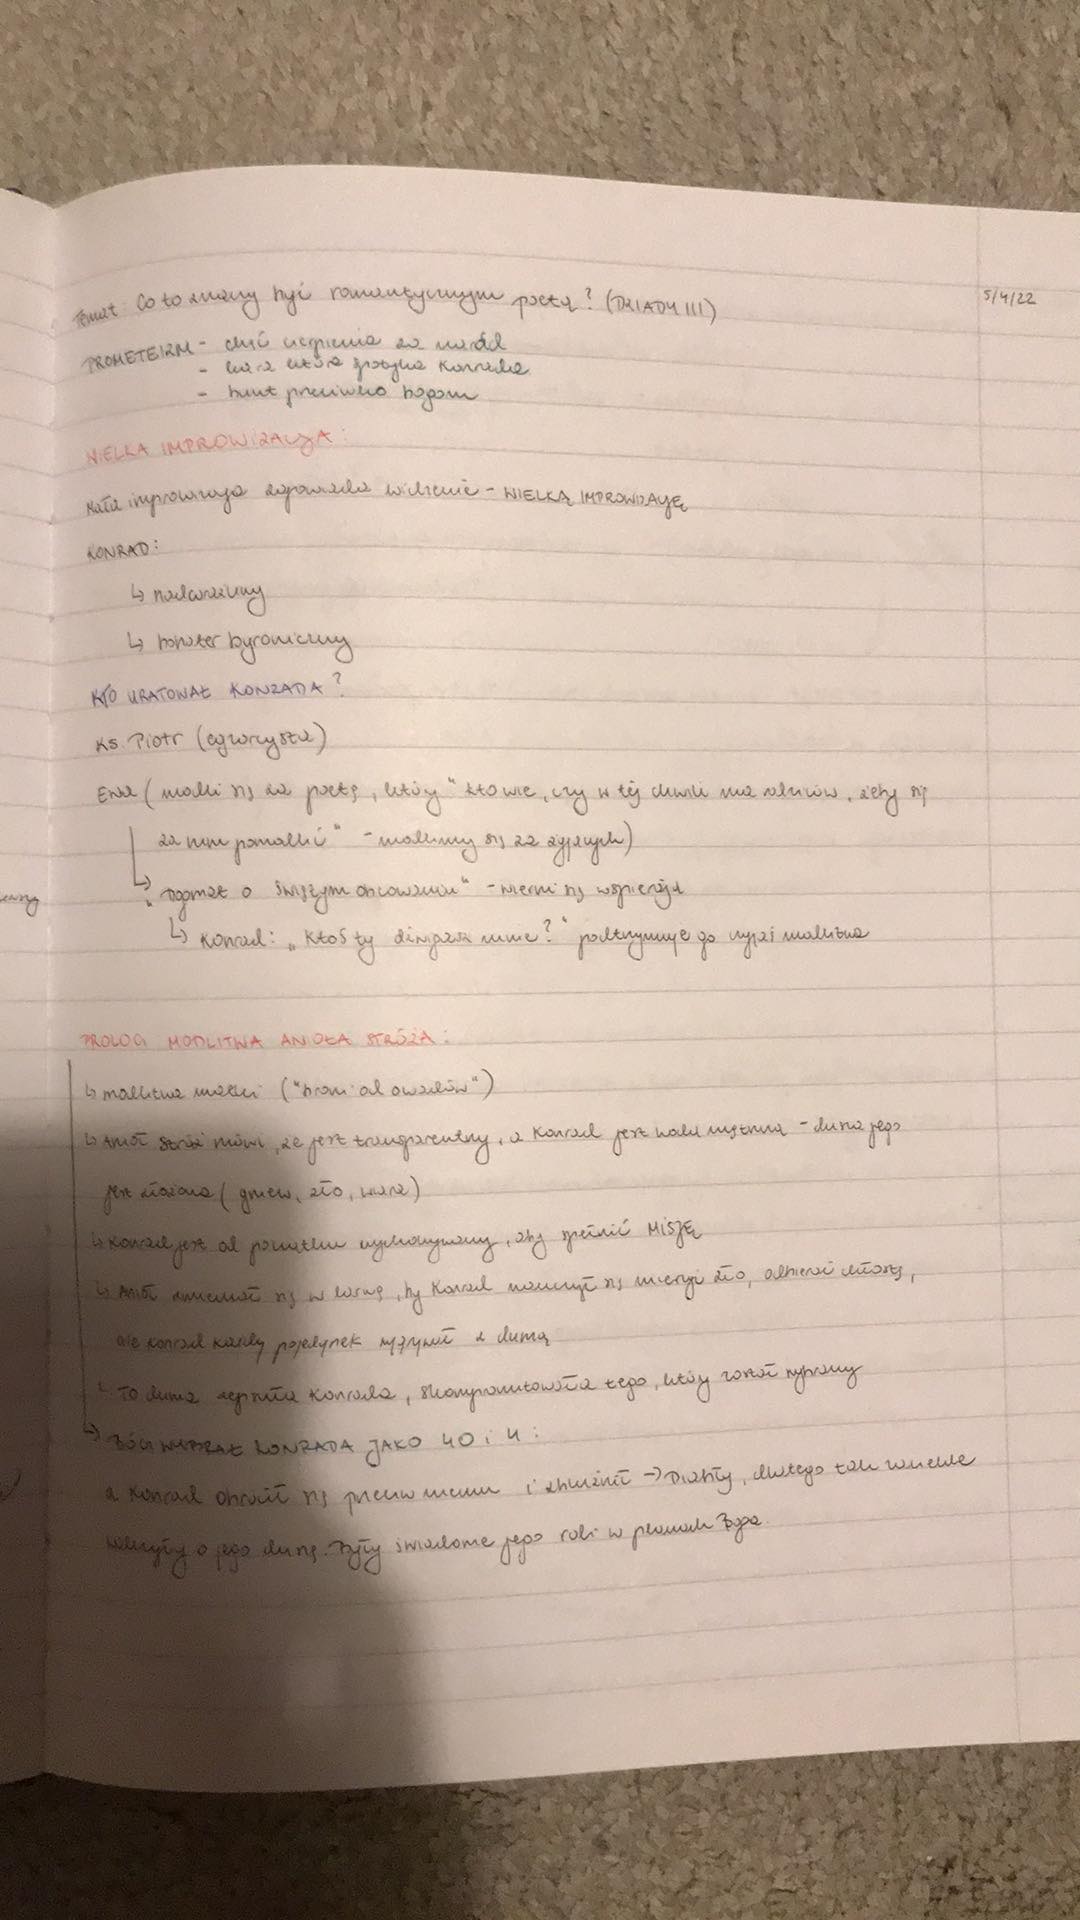 Temat: Co to znaczy być romantycznym poetą? (DZIADY III)
5/4/22
PROMETEIZM - chęć cierpienia za naród
- kara która spotyka Konrada
- bunt przeciwko bogom
WIELKA IMPROWIZACJA:
Mała improwizacja zapowiada widzenie - WIELKĄ IMPROWIZACJĘ
KONRAD:
↳ nadwrażliwy
↳ bohater byroniczny
KTO URATOWAŁ KONRADA?
Ks. Piotr (egzorcysta)
Ewa (modli się za poetę, który "kto wie, czy w tej chwili ma rodziców, żeby się
za nim pomodlić" - modlimy się za żyjących)
↳ "Dogmat o świętym obcowaniu" - wierni się wspierają
↳ Konrad: „Ktoś ty dźwigasz mnie?" podtrzymuje go czyjaś modlitwa
PROLOG MODLITWA ANIOŁA STRÓŻA:
↳ modlitwa matki ("broni od owadów")
↳ Anioł stróż mówi, że jest transparentny, a Konrad jest wodą mętną - dusza jego
jest złożona (gniew, zło, wiara)
↳ Konrad jest od początku wychowywany, aby spełnić MISJĘ
↳ Anioł zmieniał się w larwę, by Konrad nauczył się zło,
ale Konrad każdy pojedynek wygrywał z dumą
↳ To duma zepsuła Konrada, skompromitowała tego, który został wybrany
↳ BÓG WYBRAŁ KONRADA JAKO 40 i 4:
a Konrad obrócił się przeciw niemu i zbluźnił → Diabły, dlatego tak zaciekle
walczyły o jego duszę. Były świadome jego roli w planach Boga.